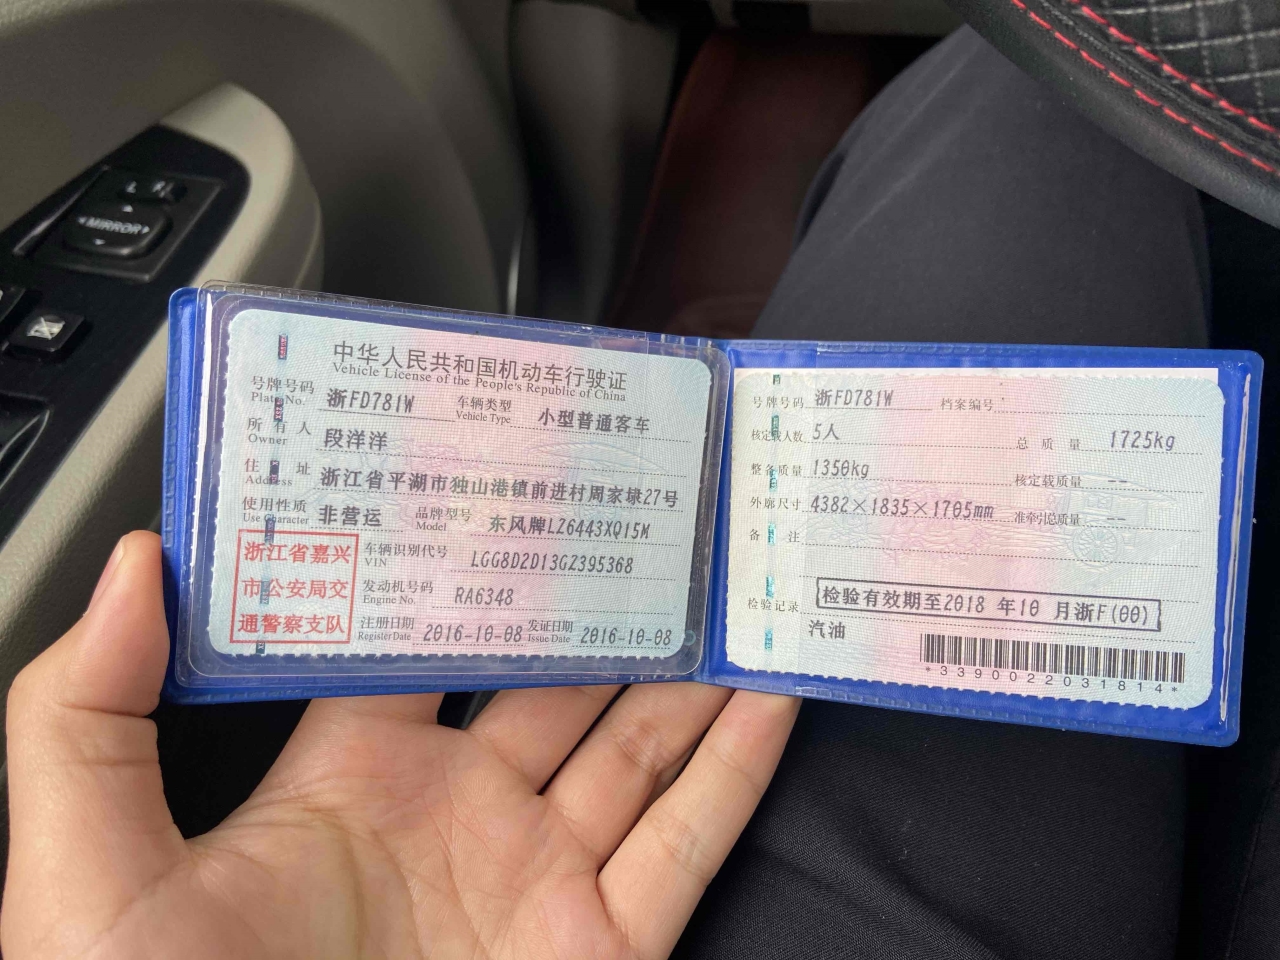 L R
MIRROR
中华人民共和国机动车行驶证
Vehicle License of the People's Republic of China
号牌号码 浙FD781W 车辆类型 小型普通客车
Plate No. Vehicle Type
所有人 段洋洋
Owner
住址 浙江省平湖市独山港镇前进村周家埭27号
Address
使用性质 非营运 品牌型号 东风牌LZ6443XQ15M
Use Character Model
浙江省嘉兴
市公安局交
通警察支队
车辆识别代号 LGG8D2D13GZ395368
VIN
发动机号码 RA6348
Engine No.
注册日期 2016-10-08 发证日期 2016-10-08
Register Date Issue Date
号牌号码 浙FD781W 档案编号
核定载人数 5人 总质量 1725kg
整备质量 1350kg 核定载质量 --
外廓尺寸 4382×1835×1705mm 准牵引总质量 --
备注
检验有效期至2018 年10 月浙F(00)
检验记录
汽油
*3390022031814*